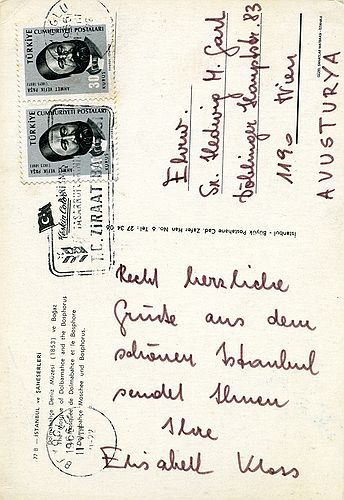 TÜRKİYE
CUMHURİYETİ POSTALARI
AHMET VEFİK PAŞA
(1823-1891)
30
KURUŞ
TÜRKİYE
CUMHURİYETİ POSTALARI
AHMET VEFİK PAŞA
(1823-1891)
T.C. ZİRAAT BANKASI
1966
77 B — İSTANBUL ve ŞAHESERLERİ
Dolmabahçe Deniz Müzesi (1853) ve Boğaz
The Mosque of Dolmabahce and the Bosphorus
Dolmabahçe Moschee und Bosphorus.
İstanbul - Büyük Postahane Cad. Zafer Han No. 6 Tel: 27 34 06
Ehrw.
Sr. Hedwig M. Gart
Döblinger Hauptstr. 83
1190 Wien
AVUSTURYA
Recht herzliche
Grüsse aus dem
schönen Istanbul
sendet Ihnen
Ihre
Elisabeth Kloss